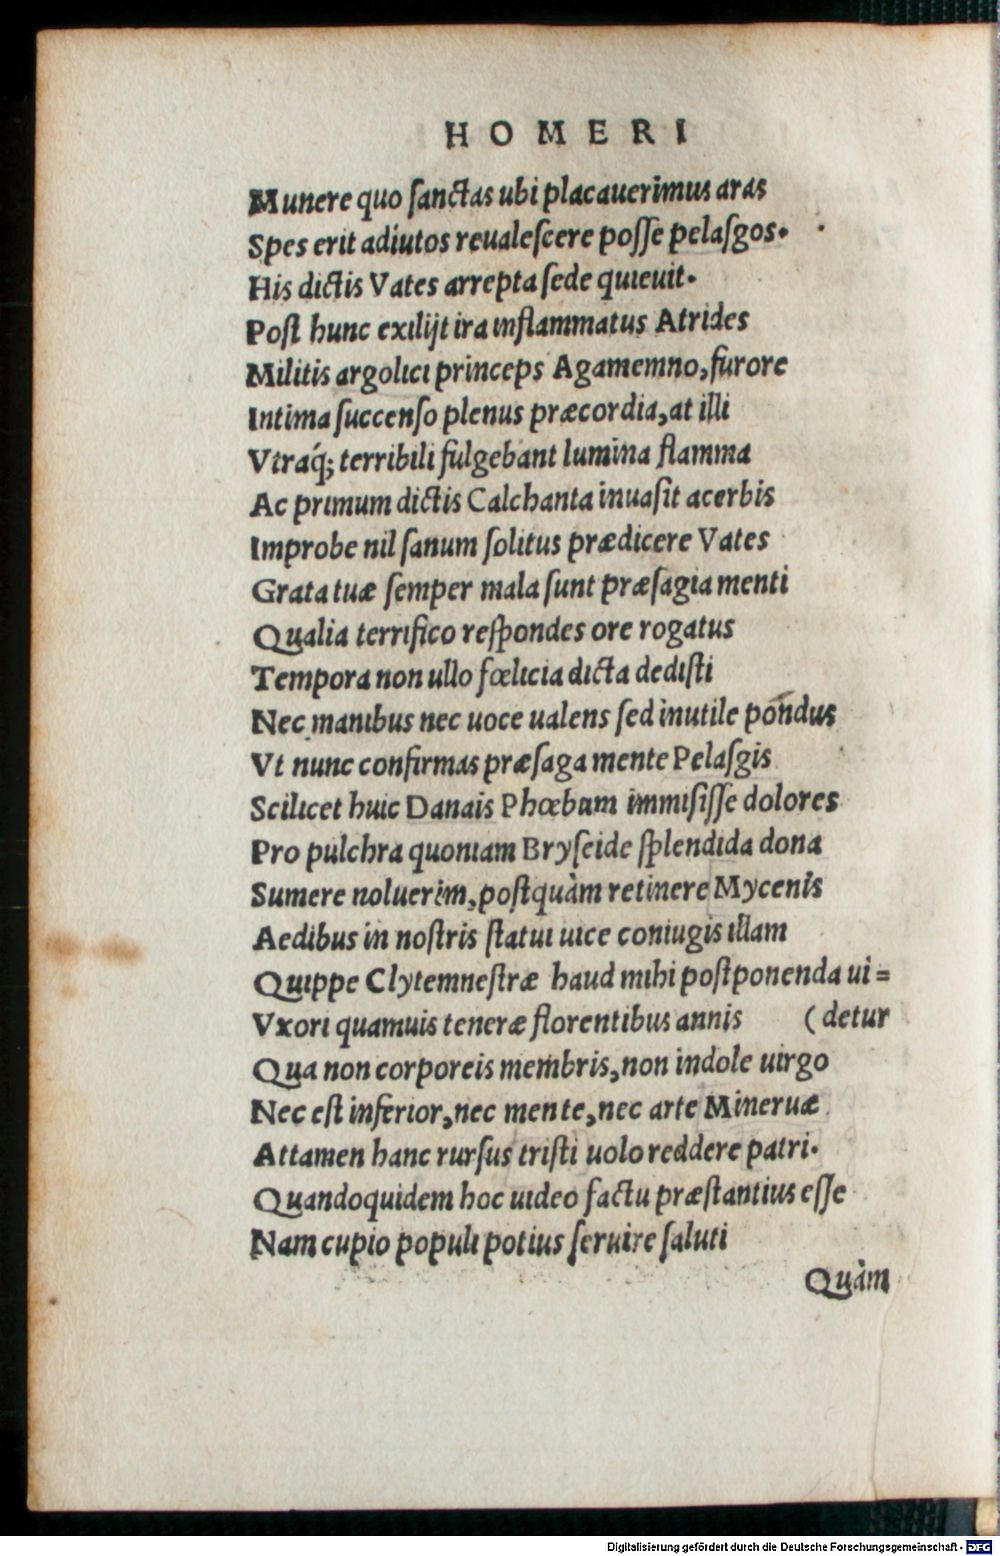 HOMERI
Munere quo ſanctas ubi placauerimus aras
Spes erit adiutos reualeſcere poſſe pelaſgos.
His dictis Vates arrepta ſede quieuit.
Poſt hunc exilijt ira inflammatus Atrides
Militis argolici princeps Agamemno, furore
Intima ſuccenſo plenus præcordia, at illi
Vtraq́; terribili fulgebant lumina flamma
Ac primum dictis Calchanta inuaſit acerbis
Improbe nil ſanum ſolitus prædicere Vates
Grata tuæ ſemper mala ſunt præſagia menti
Qualia terrifico reſpondes ore rogatus
Tempora non ullo fœlicia dicta dediſti
Nec manibus nec uoce ualens ſed inutile pondus
Vt nunc confirmas præſaga mente Pelaſgis
Scilicet huic Danais Phœbum immiſiſſe dolores
Pro pulchra quoniam Bryſeide ſplendida dona
Sumere noluerim, poſtquàm retinere Mycenis
Aedibus in noſtris ſtatui uice coniugis illam
Quippe Clytemneſtræ haud mihi poſtponenda ui=
Vxori quamuis teneræ florentibus annis (detur
Qua non corporeis membris, non indole uirgo
Nec eſt inferior, nec mente, nec arte Mineruæ
Attamen hanc rurſus triſti uolo reddere patri.
Quandoquidem hoc uideo factu præſtantius eſſe
Nam cupio populi potius ſeruire ſaluti
Quàm
Digitalisierung gefördert durch die Deutsche Forschungsgemeinschaft - DFG